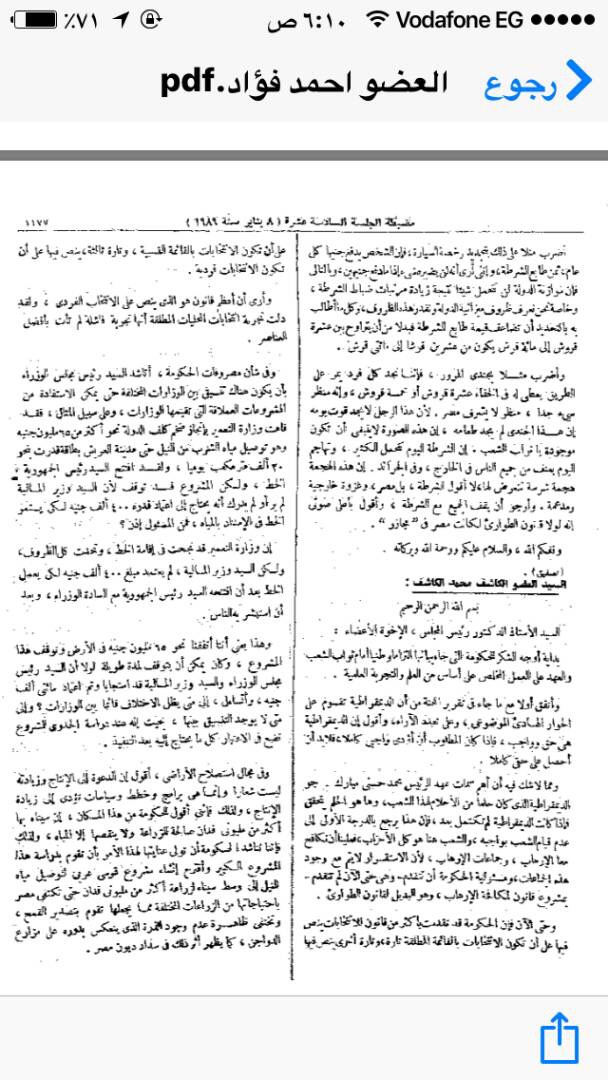 ٪٧١ ٦:١٠ ص Vodafone EG
رجوع
العضو احمد فؤاد.pdf
مضبطة الجلسة السادسة عشرة ( ٨ يناير سنة ١٩٨٩ )
١١٧٧
أضرب مثلا على ذلك بتجديد رخصة السيارة، فإن الشخص يدفع جنيها كل
عام، ثمن طابع للشرطة، وإننى أرى أنه لن يضيره شىء إذا ما دفع جنيهين، وبالتالى
فإن موازنة الدولة لن تتحمل شيئا نتيجة زيادة مرتبات ضباط الشرطة،
وخاصة نحن نعرف ظروف ميزانية الدولة ونقدر هذه الظروف، وكل ما أطالب
به بالتحديد أن تضاعف قيمة طابع الشرطة فبدلا من أن يتراوح بين عشرة
قروش إلى مائة قرش يكون من عشرين قرشا إلى مائتى قرش.
وأضرب مثلا بجندى المرور، فإننا نجد كل فرد يمر على
الطريق يعطى له فى الخفاء عشرة قروش أو خمسة قروش، وإنه منظر
سىء جدا، منظر لا يشرف مصر، لأن هذا الرجل لا يجد قوت يومه
إن هذا الجندى لم يجد طعامه، إن هذه الصورة لا ينبغى أن تكون
موجودة يا نواب الشعب. إن الشرطة اليوم تتحمل الكثير، وتهاجم
اليوم بعنف من جميع الناس فى الخارج، وفى الجرائد. إن هذه الهجمة
هجمة شرسة تتعرض لها، لا أقول الشرطة، بل مصر، وغزوة خارجية
ومدعمة. وأرجو أن يقف الجميع مع الشرطة، وأقول بأعلى صوتى
إنه لولا قانون الطوارئ لكانت مصر فى " مجازر ".
وفقكم الله، والسلام عليكم ورحمة الله وبركاته.
( تصفيق )
السيد العضو الكاشف محمد الكاشف :
بسم الله الرحمن الرحيم
السيد الأستاذ الدكتور رئيس المجلس، الإخوة الأعضاء :
بداية أوجه الشكر للحكومة التى جاء بيانها التزاما وطنيا أمام نواب الشعب
والعهد على العمل المخلص على أساس من العلم والتجربة العلمية.
وأتفق أولا مع ما جاء فى تقرير اللجنة من أن الديمقراطية تقوم على
الحوار الهادئ الموضوعى، وعلى تعدد الآراء، وأقول إن الديمقراطية
هى حق وواجب، فإذا كان المطلوب أن أؤدى واجبى كاملا، فلابد أن
أحصل على حقى كاملا.
ومما لا شك فيه أن أهم سمات عهد الرئيس محمد حسنى مبارك. جو
الديمقراطية الذى كان حلما من الأحلام لهذا الشعب، وها هو الحلم يتحقق
فإذا كانت الديمقراطية لم تكتمل بعد، فإن هذا يرجع بالدرجة الأولى إلى
عدم قيام الشعب بواجبه، والشعب هنا هو كل الأحزاب، فعلينا أن نكافح
معا الإرهاب، وجماعات الإرهاب، لأن الاستقرار لا يتم مع وجود
هذه الجماعات، ومسئولية الحكومة أن تتقدم - وهى حتى الآن لم تتقدم -
بمشروع قانون لمكافحة الإرهاب، وهو البديل لقانون الطوارئ.
وحتى الآن فإن الحكومة قد تقدمت بأكثر من قانون للانتخابات ينص
فيها على أن تكون الانتخابات بالقائمة المطلقة تارة، وتارة أخرى ينص فيها
على أن تكون الانتخابات بالقائمة النسبية، وتارة ثالثة، ينص فيها على أن
تكون الانتخابات فردية.
وأرى أن أعظم قانون هو الذى ينص على الانتخاب الفردى، ولقد
دلت تجربة انتخابات المحليات المطلقة أنها تجربة فاشلة لم تأت بأفضل
العناصر.
وفى شأن مصروفات الحكومة، أناشد السيد رئيس مجلس الوزراء
بأن يكون هناك تنسيق بين الوزارات المختلفة حتى يمكن الاستفادة من
المشروعات العملاقة التى تقيمها الوزارات، وعلى سبيل المثال، فقد
قامت وزارة التعمير بإنجاز ضخم كلف الدولة نحو أكثر من ٦٥ مليون جنيه
وهو توصيل مياه الشرب من النيل حتى مدينة العريش بطاقة قدرت نحو
٣٠ ألف متر مكعب يوميا، ولقد افتتح السيد رئيس الجمهورية
الخط، ولكن المشروع قد توقف لأن السيد وزير المالية
لم ير أو لم يدرك أنه يحتاج إلى اعتماد قدره ٤٠٠ ألف جنيه لكى يستمر
الخط فى الإمداد بالمياه، فمن المسئول إذن ؟
إن وزارة التعمير قد نجحت فى إقامة الخط، وتحملت كل الظروف،
ولكن السيد وزير المالية، لم يعتمد مبلغ ٤٠٠ ألف جنيه لكى يعمل
الخط بعد أن افتتحه السيد رئيس الجمهورية مع السادة الوزراء، وبعد
أن استبشر به الناس.
وهذا يعنى أننا أنفقنا نحو ٦٥ مليون جنيه فى الأرض وتوقف هذا
المشروع، وكان يمكن أن يتوقف لمدة طويلة لولا أن السيد رئيس
مجلس الوزراء والسيد وزير المالية قد استجابا وتم اعتماد مائتى ألف
جنيه، وأتساءل، إلى متى يظل الاختلاف قائما بين الوزارات ؟ وإلى
متى لا يوجد التنسيق بينها، بحيث إنه عند دراسة الجدوى للمشروع
تضع فى الاعتبار كل ما يحتاج إليه بعد التنفيذ.
وفى مجال استصلاح الأراضى، أقول إن الدعوة إلى الإنتاج وزيادته
ليست شعارا وإنما هى برامج وخطط وسياسات تؤدى إلى زيادة
الإنتاج، ولذلك فإننى أقول للحكومة من هذا المكان، إن سيناء بها
أكثر من مليونى فدان صالحة للزراعة ولا ينقصها إلا المياه، ولذلك
فإننا نناشد الحكومة أن تولى عنايتها لهذا الأمر بأن تقوم بدراسة هذا
المشروع الكبير وأقترح إنشاء مشروع قومى عربى لتوصيل مياه
النيل إلى وسط سيناء لزراعة أكثر من مليونى فدان حتى تكتفى مصر
باحتياجاتها من الزراعات المختلفة مما يجعلها تقوم بتصدير القمح،
وتختفى ظاهرة عدم وجود الذرة الذى ينعكس بدوره على مزارع
الدواجن، كما يظهر أثر ذلك فى سداد ديون مصر.